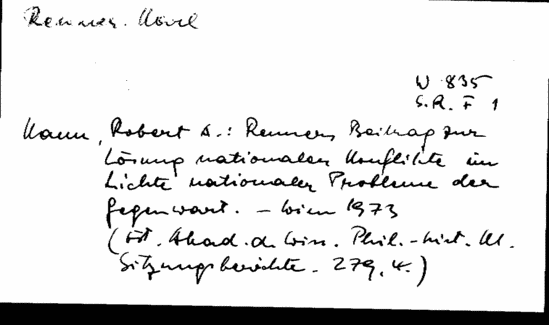 Renner. Karl
W 835
S.R. F 1
Kann, Robert A.: Renners Beitrag zur
Lösung nationaler Konflikte im
Lichte nationaler Probleme der
Gegenwart. – Wien 1973
(Öst. Akad. d. Wiss. Phil.-hist. Kl.
Sitzungsberichte. 279, 4.)